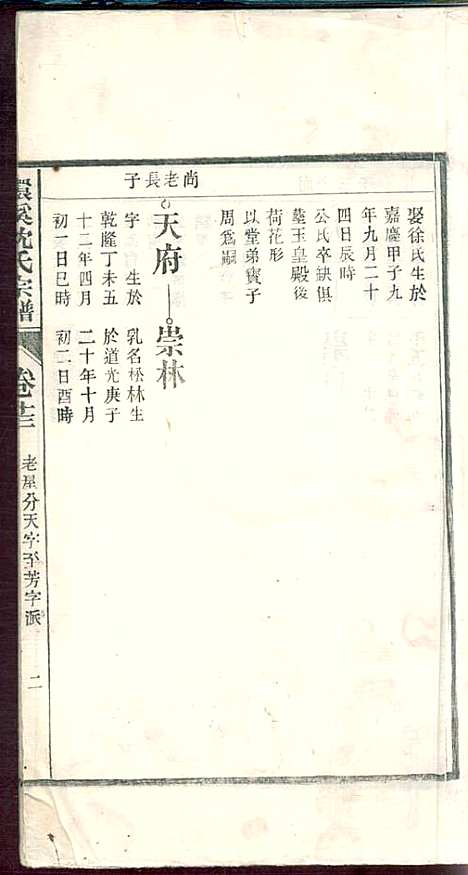 娶徐氏生於
嘉慶甲子九
年九月二十
四日辰時
公氏卒缺俱
墓王皇殿後
荷花形
以堂弟寶子
周爲嗣
尚老長子
天府—崇林
字 生於
乾隆丁未五
十二年四月
初一日巳時
乳名松林生
於道光庚子
二十年十月
初二日酉時
環溪沈氏宗譜
卷十三
老屋分天字至芳字派
二